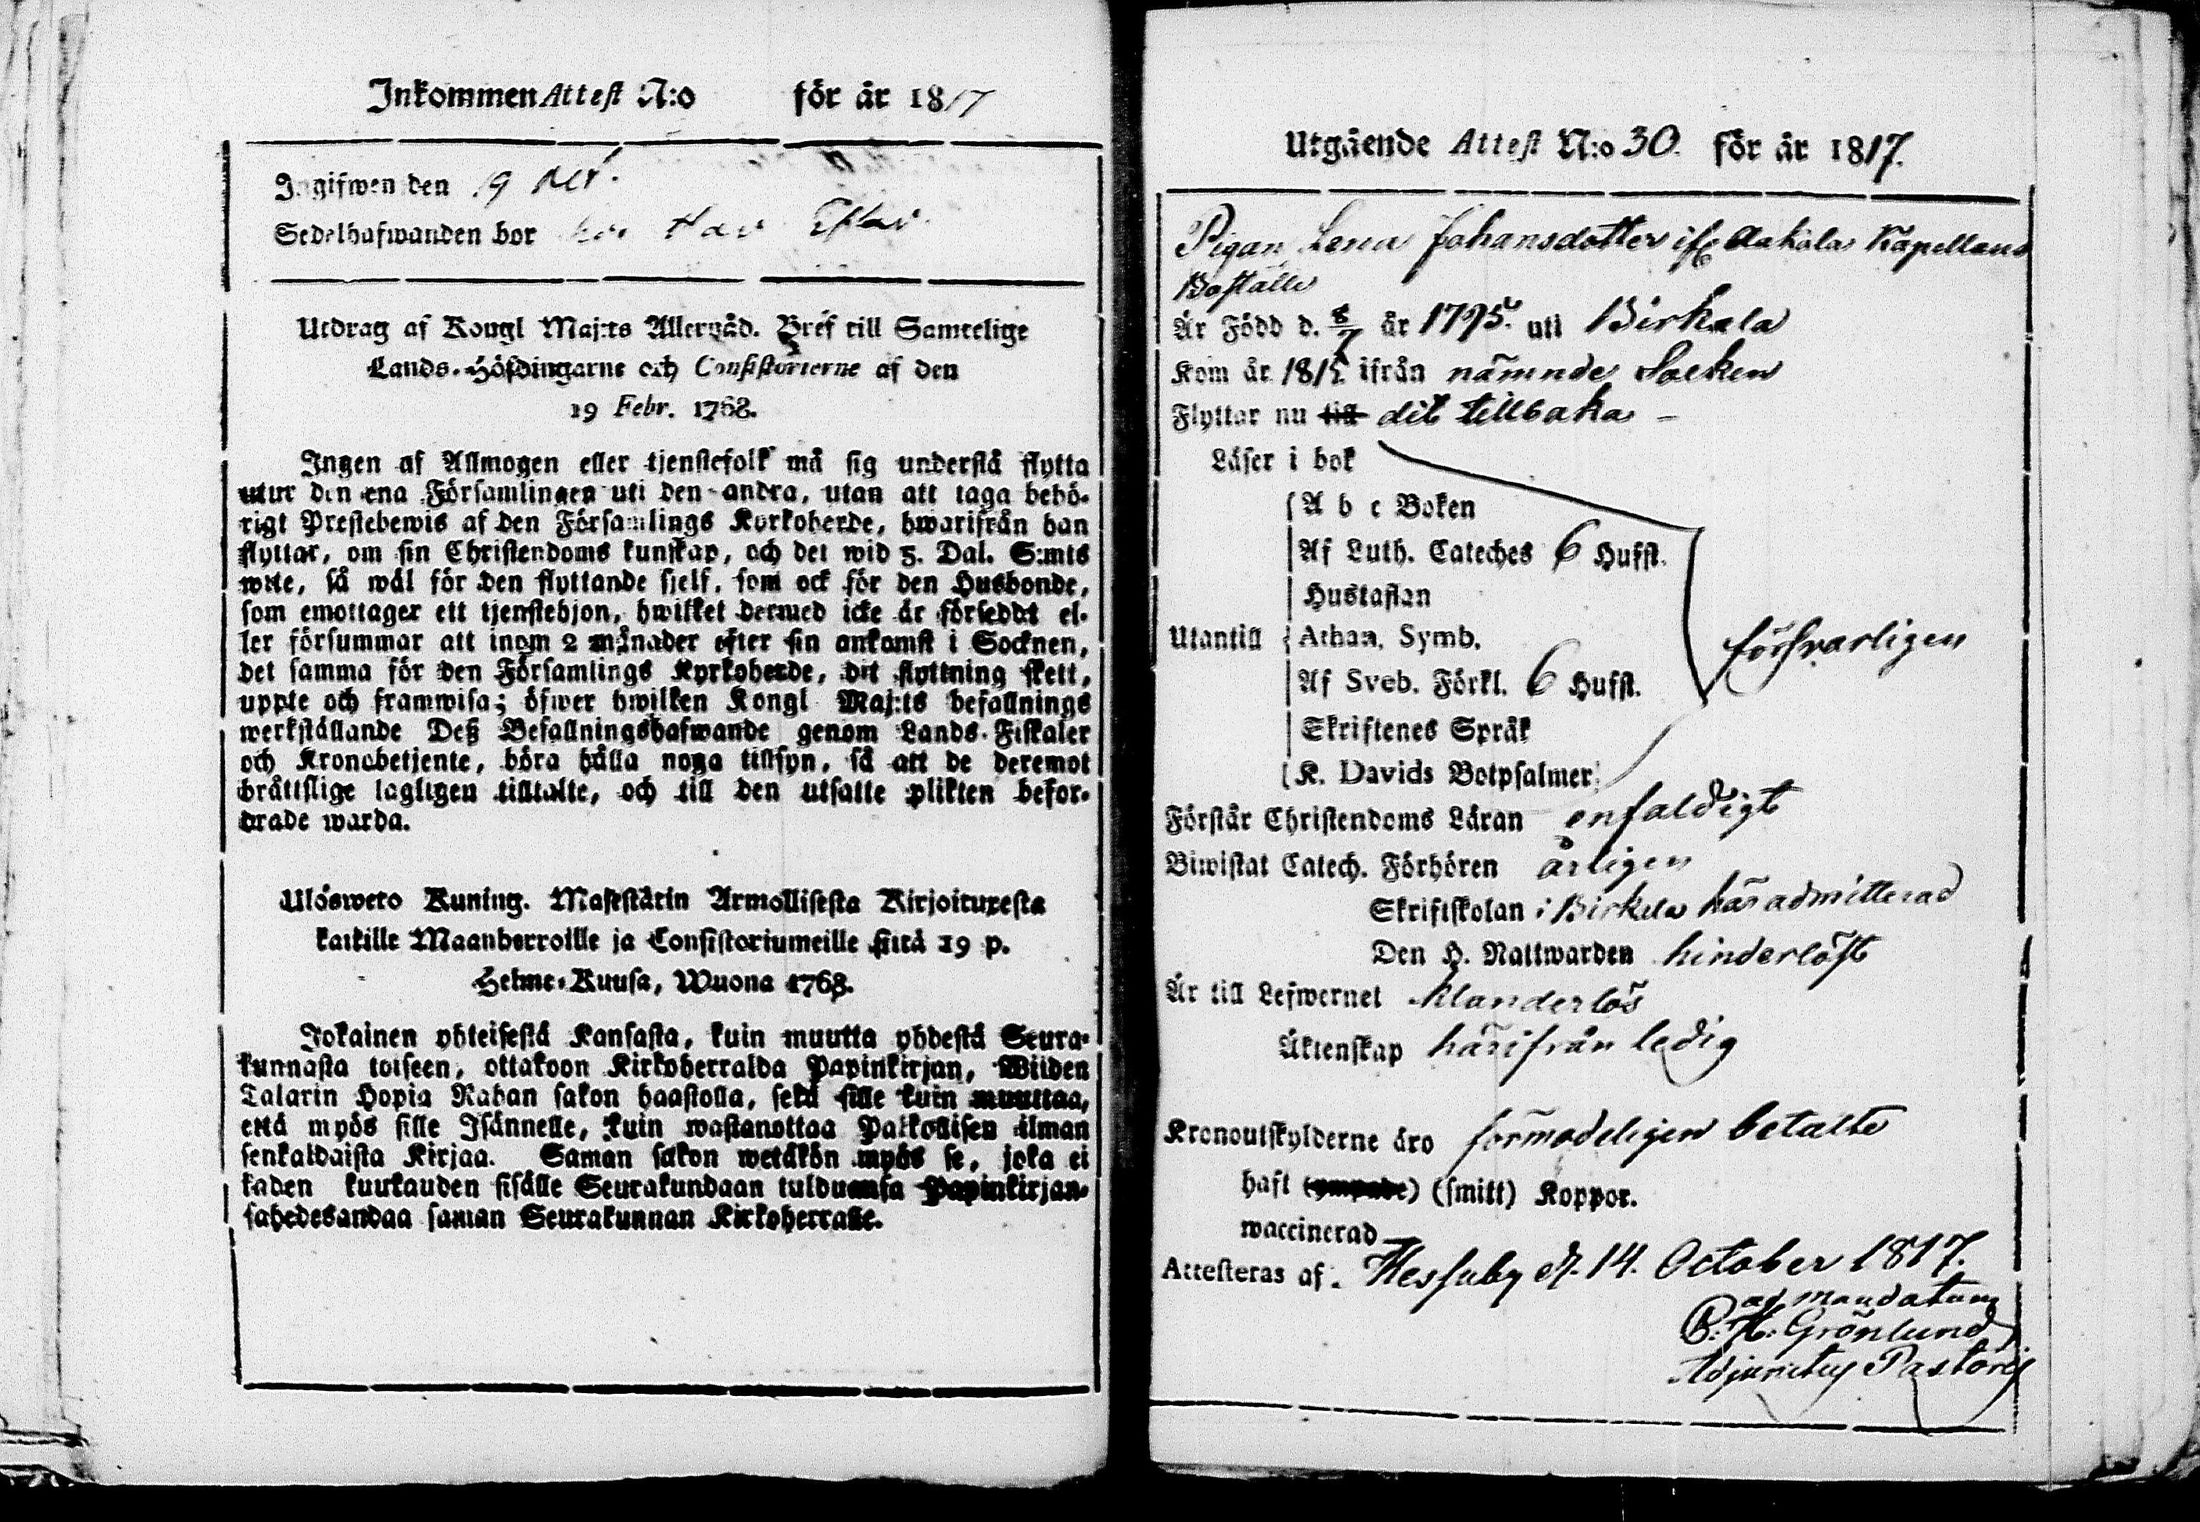 Inkommen Attest N:o för år 1817
Ingifwen den 19 Oct.
Sedelhafwanden bor
Utdrag af Kongl Maj:ts Allernåd. Bref till Samtelige
Lands-Höfdingarne och Consistorierne af den
19 Febr. 1768.
Ingen af Allmogen eller tjenstefolk må sig understå flytta
utur den ena Församlingen uti den andra, utan att taga behö-
rigt Prestebewis af den Församlings Kyrkoherde, hwarifrån han
flyttar, om sin Christendoms kunskap, och det wid 5. Dal. S:mts
wite, så wäl för den flyttande sjelf, som ock för den Husbonde,
som emottager ett tjenstehjon, hwilket dermed icke är förseddt el-
ler försummar att inom 2 månader efter sin ankomst i Socknen,
det samma för den Församlings Kyrkoherde, dit flyttning skett,
uppte och framwisa; öfwer hwilken Kongl Maj:ts befallnings
werkställande Deß Befallningshafwande genom Lands-Fiskaler
och Kronobetjente, böra hålla noga tillsyn, så att de deremot
bråttslige lagligen tilltalte, och till den utsatte plikten befor-
drade warda.
Ulösweto Kuning. Majestätin Armollisesta Kirjoituxesta
kaikille Maanherroille ja Consistoriumeille siitä 19 p.
Helme-Kuusa, Wuona 1768.
Jokainen yhteisestä Kansasta, kuin muutta yhdestä Seura-
kunnasta toiseen, ottakoon Kirkoherralda Papinkirjan, Wiiden
Talarin Hopia Rahan sakon haastolla, sekä sille kuin muuttaa,
että myös sille Isännelle, kuin wastanottaa Palkollisen ilman
senkaldaista Kirjaa. Saman sakon wetäkön myös se, joka ei
kaden kuukauden sisälle Seurakundaan tulduansa Papinkirjan-
sahedesandaa saman Seurakunnan Kirkoherralle.
Utgående Attest N:o 30. för år 1817.
Pigan Lena Johansdotter ifr Aakala Kapellans
Boställe
Är Född d. 8/7 år 1795. uti Birkala
Kom år 1815 ifrån nämnde Socken
Flyttar nu till dit tillbaka
Läser i bok
A b c Boken
Af Luth. Cateches 6 Hufst.
Hustaflan
Utantill Athan. Symb. försvarligen
Af Sveb. Förkl. 6 Hufst.
Skriftenes Språk
K. Davids Botpsalmer
Förstår Christendoms Läran enfaldigt
Biwistat Catech. Förhören årligen
Skriftskolan i Birkala här admitterad
Den H. Nattwarden hinderlöst
Är till Lefwernet klanderlös
Äktenskap härifrån ledig
Kronoutskylderne äro förmodeligen betalte
haft (ympade) (smitt) Koppor.
waccinerad
Attesteras af. Messuby d. 14. October 1817.
ad mandatum
B. H. Grönlund
Adjunctus Pastoris